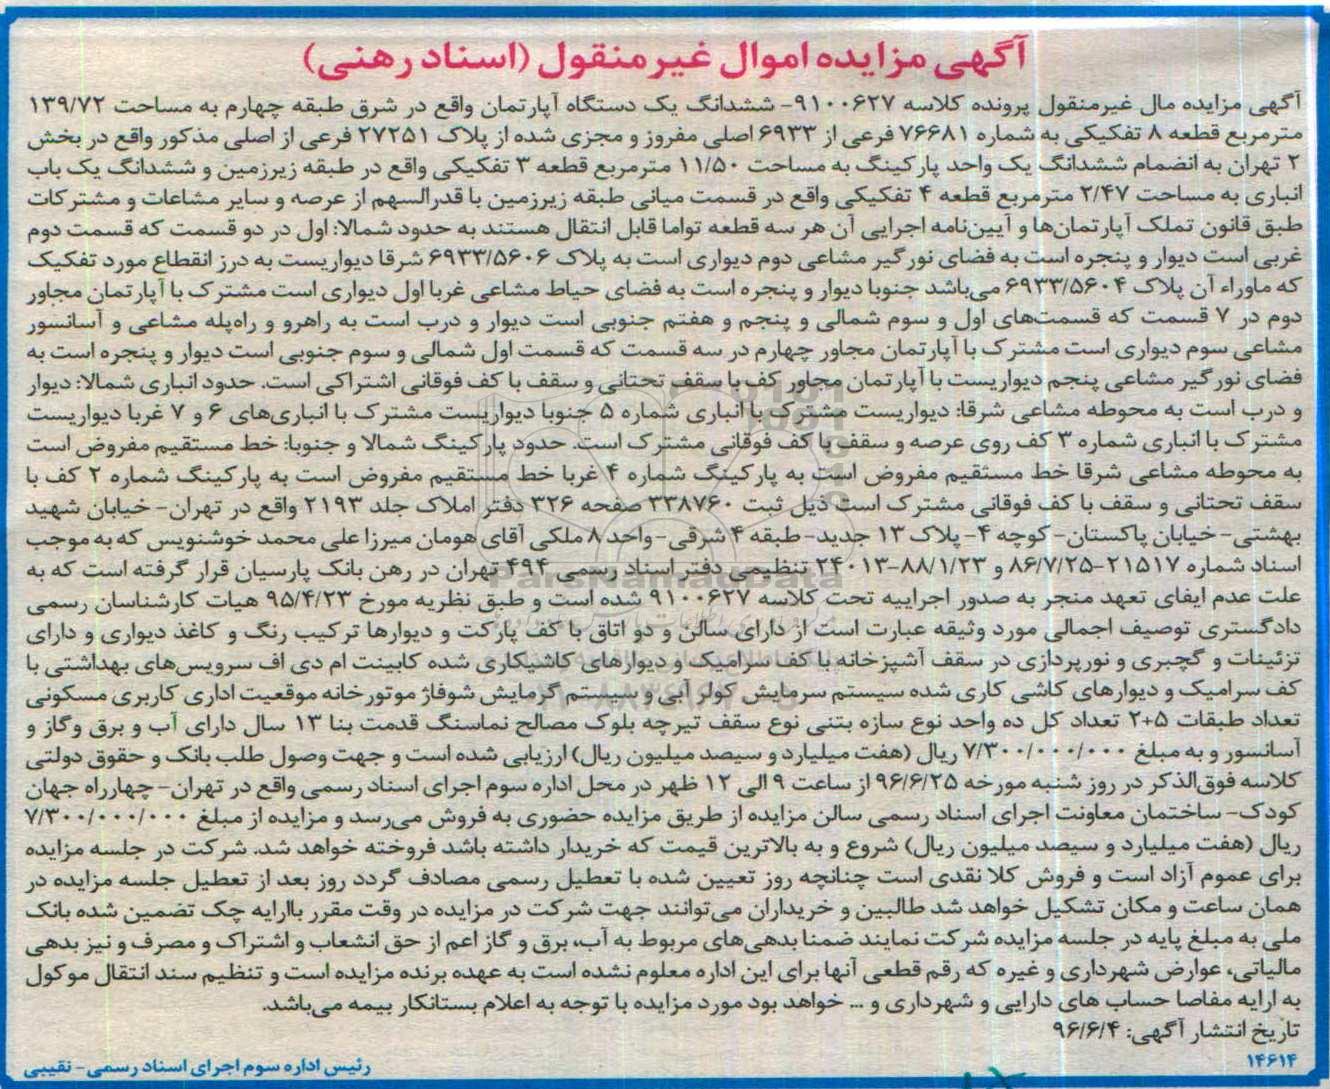 آگهی مزایده اموال غیرمنقول (اسناد رهنی)
آگهی مزایده مال غیرمنقول پرونده کلاسه ۹۱۰۰۶۲۷- ششدانگ یک دستگاه آپارتمان واقع در شرق طبقه چهارم به مساحت ۱۳۹/۷۲
مترمربع قطعه ۸ تفکیکی به شماره ۷۶۶۸۱ فرعی از ۶۹۳۳ اصلی مفروز و مجزی شده از پلاک ۲۷۲۵۱ فرعی از اصلی مذکور واقع در بخش
۲ تهران به انضمام ششدانگ یک واحد پارکینگ به مساحت ۱۱/۵۰ مترمربع قطعه ۳ تفکیکی واقع در طبقه زیرزمین و ششدانگ یک باب
انباری به مساحت ۲/۴۷ مترمربع قطعه ۴ تفکیکی واقع در قسمت میانی طبقه زیرزمین با قدرالسهم از عرصه و سایر مشاعات و مشترکات
طبق قانون تملک آپارتمان‌ها و آیین‌نامه اجرایی آن هر سه قطعه تواما قابل انتقال هستند به حدود شمالا: اول در دو قسمت که قسمت دوم
غربی است دیوار و پنجره است به فضای نورگیر مشاعی دوم دیواری است به پلاک ۶۹۳۳/۵۶۰۶ شرقا دیواریست به درز انقطاع مورد تفکیک
که ماوراء آن پلاک ۶۹۳۳/۵۶۰۴ می‌باشد جنوبا دیوار و پنجره است به فضای حیاط مشاعی غربا اول دیواری است مشترک با آپارتمان مجاور
دوم در ۷ قسمت که قسمت‌های اول و سوم شمالی و پنجم و هفتم جنوبی است دیوار و درب است به راهرو و راه‌پله مشاعی و آسانسور
مشاعی سوم دیواری است مشترک با آپارتمان مجاور چهارم در سه قسمت که قسمت اول شمالی و سوم جنوبی است دیوار و پنجره است به
فضای نورگیر مشاعی پنجم دیواریست با آپارتمان مجاور کف با سقف تحتانی و سقف با کف فوقانی اشتراکی است. حدود انباری شمالا: دیوار
و درب است به محوطه مشاعی شرقا: دیواریست مشترک با انباری شماره ۵ جنوبا دیواریست مشترک با انباری‌های ۶ و ۷ غربا دیواریست
مشترک با انباری شماره ۳ کف روی عرصه و سقف با کف فوقانی مشترک است. حدود پارکینگ شمالا و جنوبا: خط مستقیم مفروض است
به محوطه مشاعی شرقا خط مستقیم مفروض است به پارکینگ شماره ۴ غربا خط مستقیم مفروض است به پارکینگ شماره ۲ کف با
سقف تحتانی و سقف با کف فوقانی مشترک است ذیل ثبت ۳۳۸۷۶۰ صفحه ۳۲۶ دفتر املاک جلد ۲۱۹۳ واقع در تهران- خیابان شهید
بهشتی- خیابان پاکستان- کوچه ۴- پلاک ۱۳ جدید- طبقه ۴ شرقی- واحد ۸ ملکی آقای هومان میرزا علی محمد خوشنویس که به موجب
اسناد شماره ۲۱۵۱۷-۸۶/۷/۲۵ و ۸۸/۱/۲۳-۲۴۰۱۳ تنظیمی دفتر اسناد رسمی ۴۹۴ تهران در رهن بانک پارسیان قرار گرفته است که به
علت عدم ایفای تعهد منجر به صدور اجراییه تحت کلاسه ۹۱۰۰۶۲۷ شده است و طبق نظریه مورخ ۹۵/۴/۲۳ هیات کارشناسان رسمی
دادگستری توصیف اجمالی مورد وثیقه عبارت است از دارای سالن و دو اتاق با کف پارکت و دیوارها ترکیب رنگ و کاغذ دیواری و دارای
تزئینات و گچبری و نورپردازی در سقف آشپزخانه با کف سرامیک و دیوارهای کاشیکاری شده کابینت ام دی اف سرویس‌های بهداشتی با
کف سرامیک و دیوارهای کاشی کاری شده سیستم سرمایش کولر آبی و سیستم گرمایش شوفاژ موتورخانه موقعیت اداری کاربری مسکونی
تعداد طبقات ۵+۲ تعداد کل ده واحد نوع سازه بتنی نوع سقف تیرچه بلوک مصالح نماسنگ قدمت بنا ۱۳ سال دارای آب و برق وگاز و
آسانسور و به مبلغ ۷/۳۰۰/۰۰۰/۰۰۰ ریال (هفت میلیارد و سیصد میلیون ریال) ارزیابی شده است و جهت وصول طلب بانک و حقوق دولتی
کلاسه فوق‌الذکر در روز شنبه مورخه ۹۶/۶/۲۵ از ساعت ۹ الی ۱۲ ظهر در محل اداره سوم اجرای اسناد رسمی واقع در تهران- چهارراه جهان
کودک- ساختمان معاونت اجرای اسناد رسمی سالن مزایده از طریق مزایده حضوری به فروش می‌رسد و مزایده از مبلغ ۷/۳۰۰/۰۰۰/۰۰۰
ریال (هفت میلیارد و سیصد میلیون ریال) شروع و به بالاترین قیمت که خریدار داشته باشد فروخته خواهد شد. شرکت در جلسه مزایده
برای عموم آزاد است و فروش کلا نقدی است چنانچه روز تعیین شده با تعطیل رسمی مصادف گردد روز بعد از تعطیل جلسه مزایده در
همان ساعت و مکان تشکیل خواهد شد طالبین و خریداران می‌توانند جهت شرکت در مزایده در وقت مقرر باارایه چک تضمین شده بانک
ملی به مبلغ پایه در جلسه مزایده شرکت نمایند ضمنا بدهی‌های مربوط به آب، برق و گاز اعم از حق انشعاب و اشتراک و مصرف و نیز بدهی
مالیاتی، عوارض شهرداری و غیره که رقم قطعی آنها برای این اداره معلوم نشده است به عهده برنده مزایده است و تنظیم سند انتقال موکول
به ارایه مفاصا حساب های دارایی و شهرداری و ... خواهد بود مورد مزایده با توجه به اعلام بستانکار بیمه می‌باشد.
تاریخ انتشار آگهی: ۹۶/۶/۴
۱۴۶۱۴
رئیس اداره سوم اجرای اسناد رسمی- نقیبی
ParsNamadData